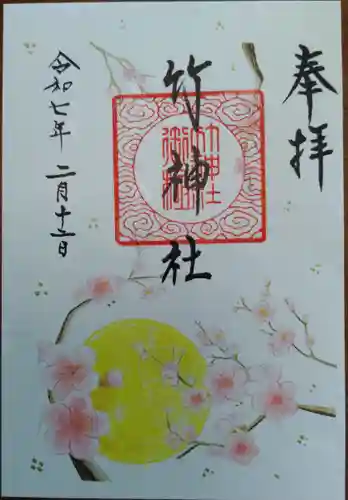 奉拝
竹神社
令和七年 二月十二日